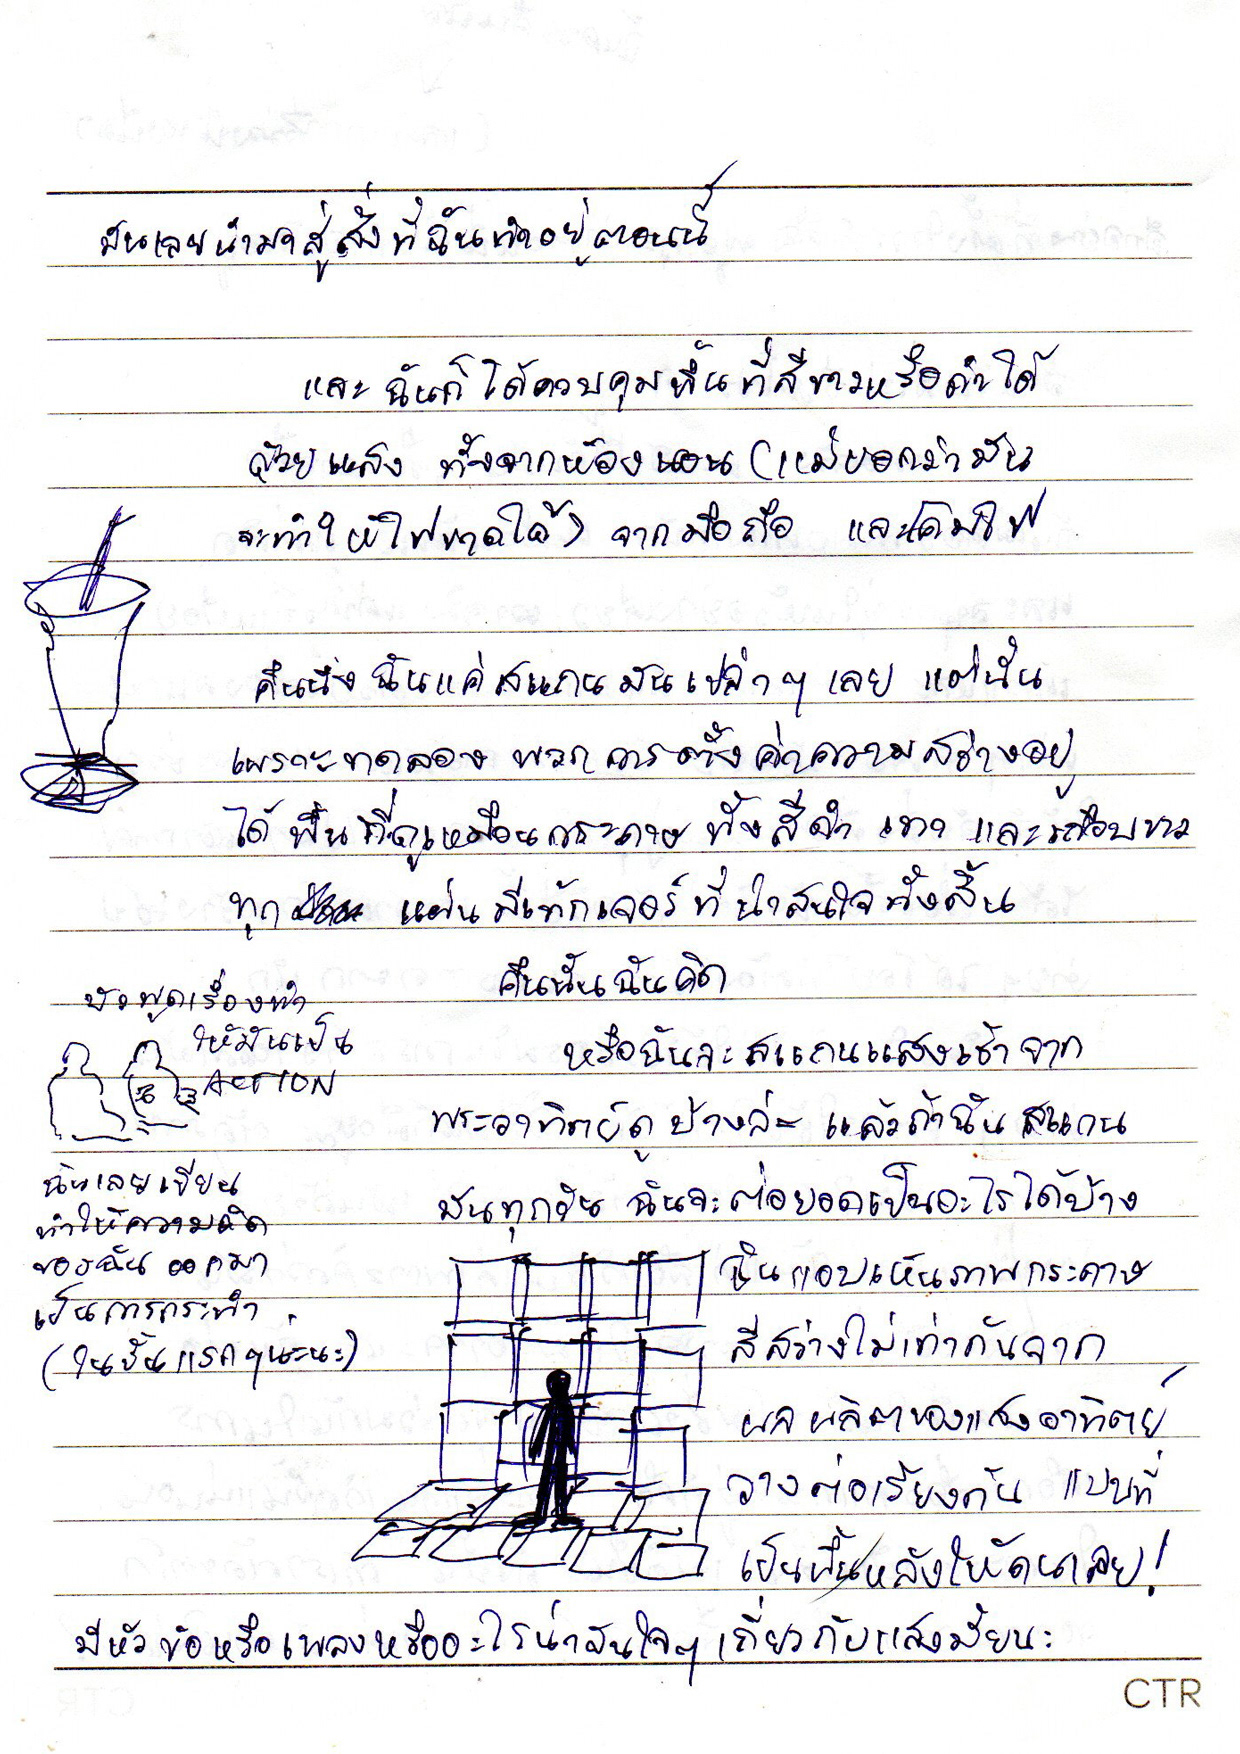 มันเลยนำมาสู่สิ่งที่ฉันทำอยู่ตอนนี้
และ ฉันก็ได้ควบคุมพื้นที่สีขาวหรือดำได้
ด้วยแสง ทั้งจากห้องนอน (แม่บอกว่ามัน
จะทำให้ไฟขาดได้) จากมือถือ และโคมไฟ
คืนนึง ฉันแค่สแกนมันเปล่าๆ เลย แต่นั่น
เพราะทดลอง พวกการตั้งค่าความสว่างอยู่
ได้ พื้นที่ดูเหมือนกระดาษ ทั้งสีดำ เทา และเกือบขาว
ทุก แผ่น มีเท็กเจอร์ที่น่าสนใจทั้งสิ้น
คืนนั้นฉันคิด
หรือฉันจะสแกนแสงเช้าจาก
พระอาทิตย์ดูบ้างล่ะ แล้วถ้าฉันสแกน
มันทุกวัน ฉันจะต่อยอดเป็นอะไรได้บ้าง
พูดเรื่องทำ
ให้มันเป็น
ACTION
ฉันเลยเขียน
ทำให้ความคิด
ของฉัน ออกมา
เป็นการกระทำ
(ในขั้นแรกๆน่ะนะ)
ฉันแอบเห็นภาพกระดาษ
สีสว่างไม่เท่ากันจาก
ผลผลิตของแสงอาทิตย์
วางต่อเรียงกัน แบบที่
เป็นพื้นหลังให้คนเลย!
มีหัวข้อหรือเพลงหรืออะไรน่าสนใจๆ เกี่ยวกับแสงมั้ยนะ
CTR